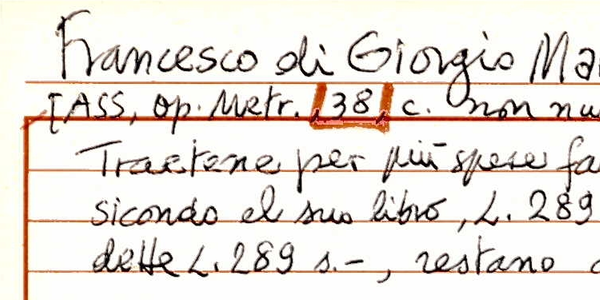 Francesco di Giorgio Ma
[ASS, Op. Metr. 38, c. non nu
Tractene per più spese fa
sicondo el suo libro, L. 289
dette L. 289 s.-, restano